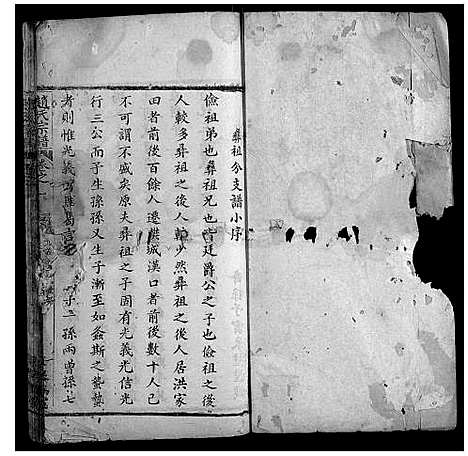 彝祖分支譜小序
儉祖弟也彝祖兄也皆廷爵公之子也儉祖之後
人較多彝祖之後人較少然彝祖之後人居洪家
田者前後百餘人遷縣城漢口者前後數十人已
不可謂不盛矣原夫彝祖之子固有光義光信光
行三公而子生孫孫又生子漸至如螽斯之蟄蟄
者則惟光義公
子二孫兩曾孫七
趙氏宗譜